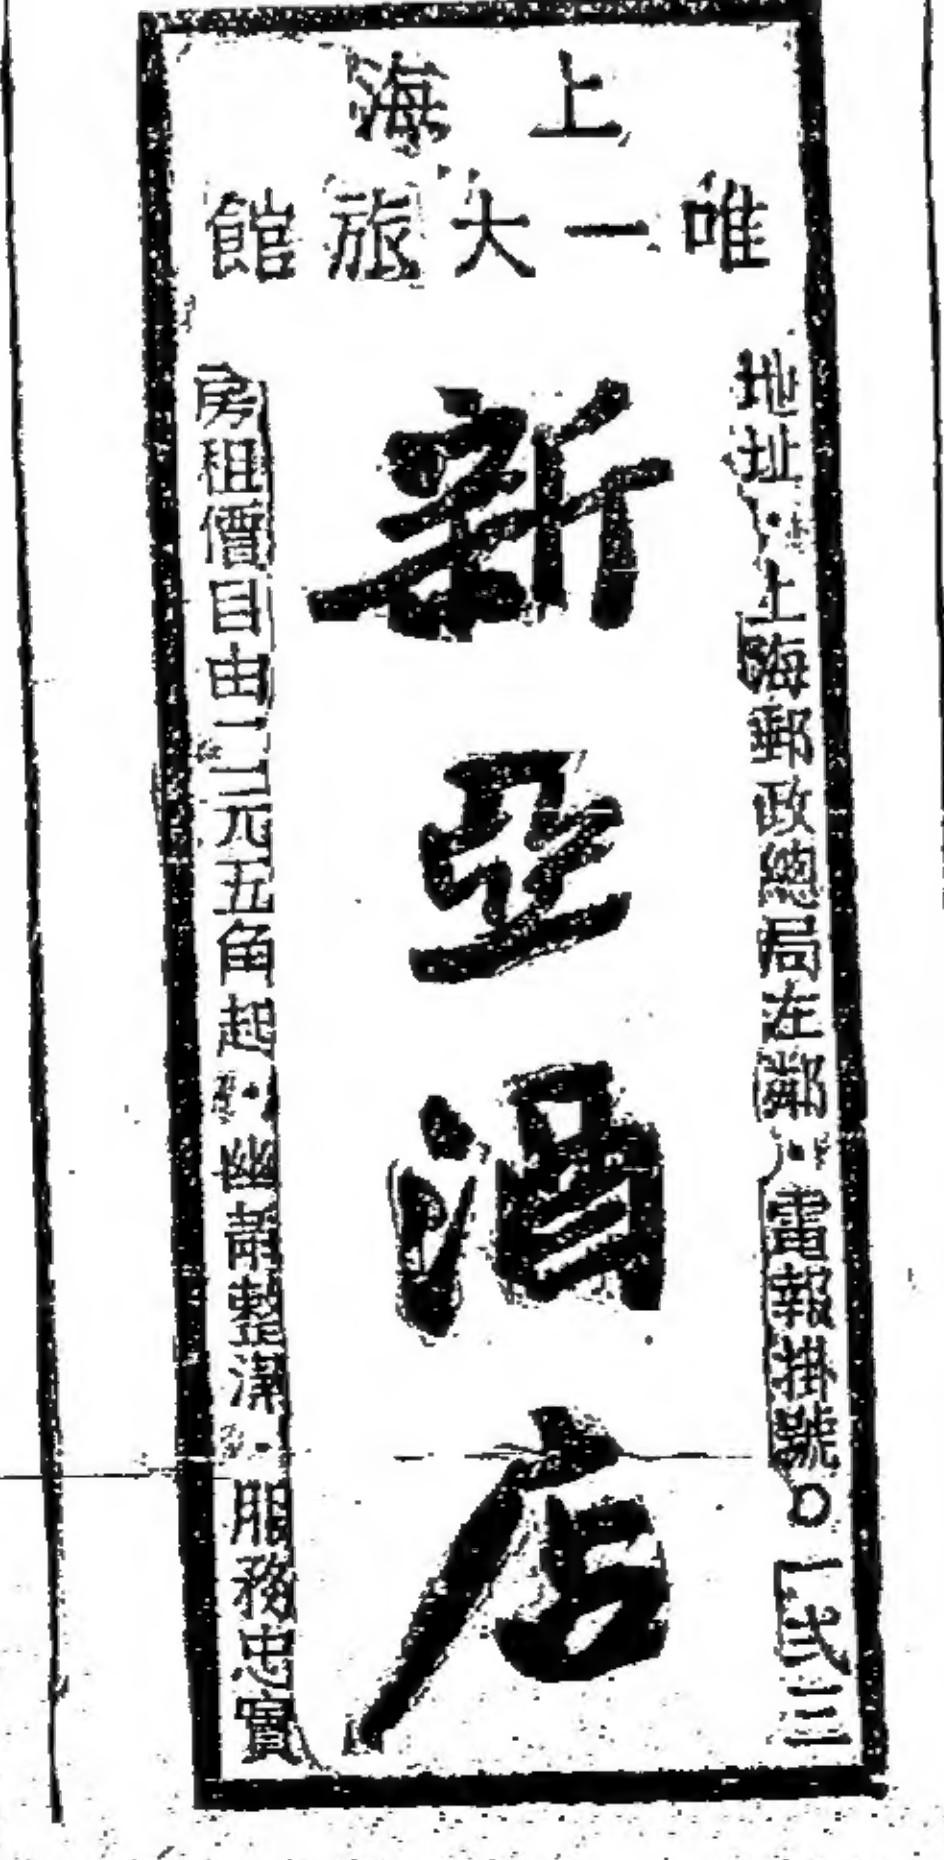 上海
唯一大旅館
地址·上海郵政總局左鄰·電報掛號〇一式三
新亞酒店
房租價目由二元五角起·幽靜整潔·服務忠實